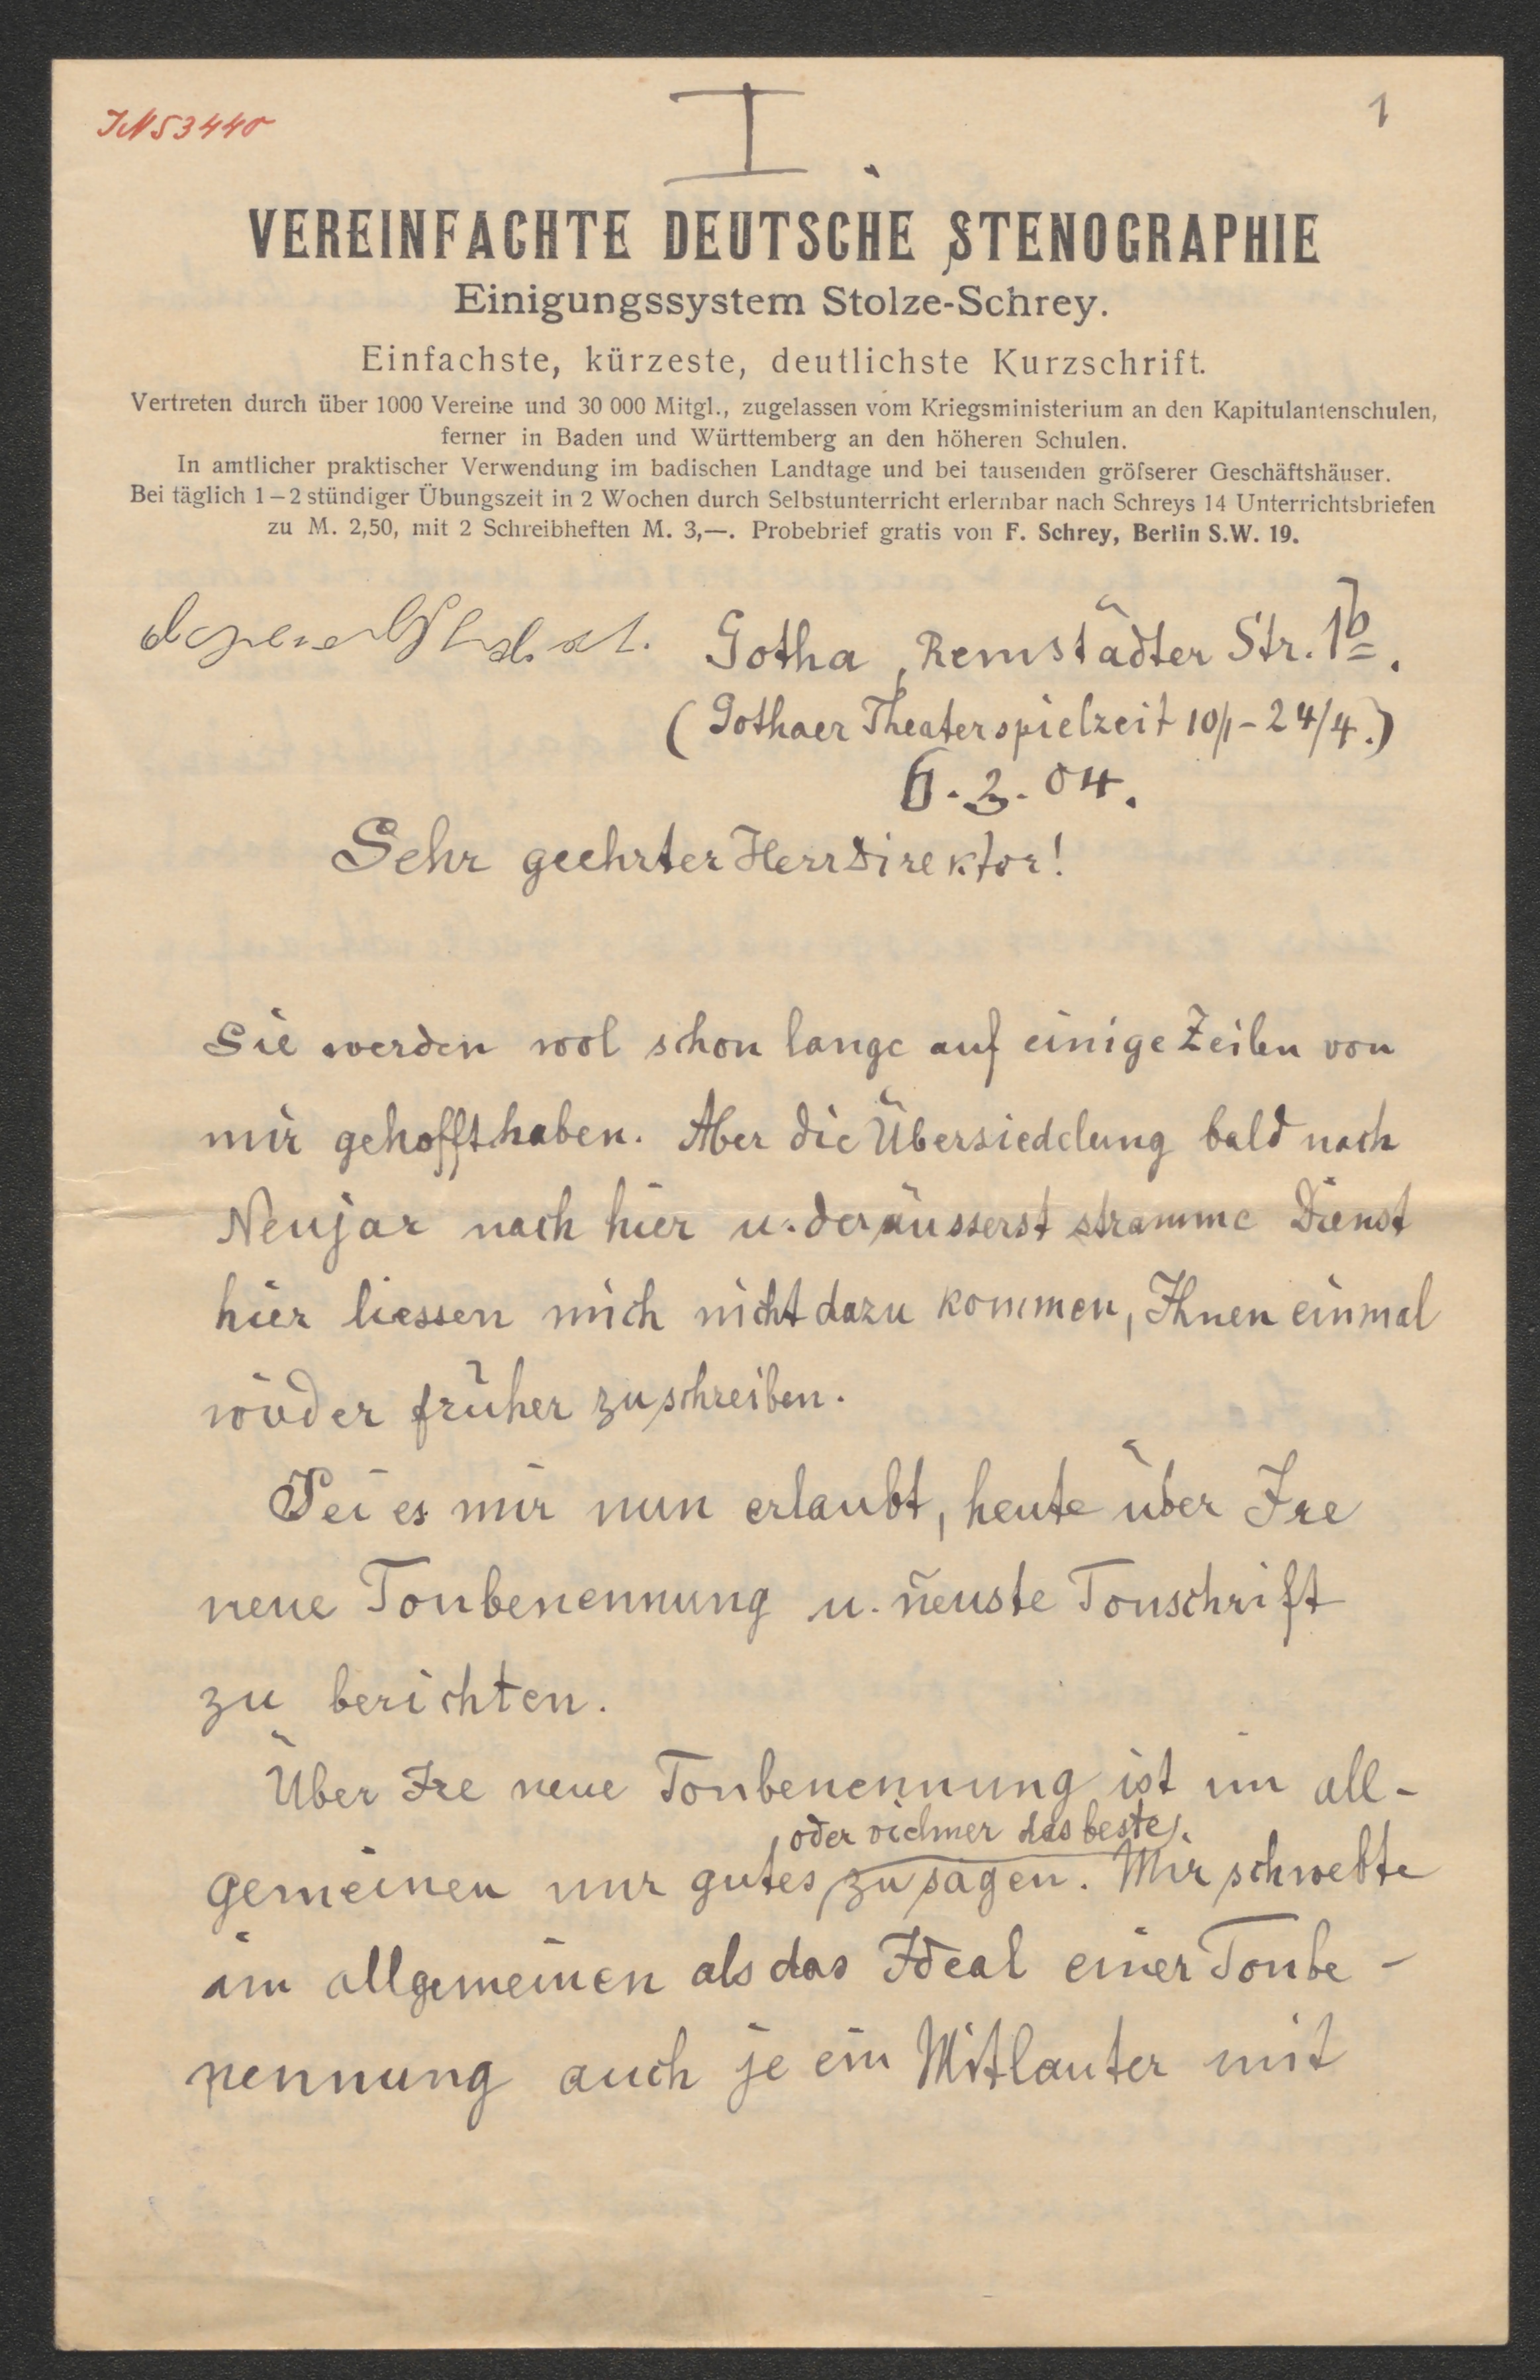 JN 53440
I
1
VEREINFACHTE DEUTSCHE STENOGRAPHIE
Einigungssystem Stolze-Schrey.
Einfachste, kürzeste, deutlichste Kurzschrift.
Vertreten durch über 1000 Vereine und 30 000 Mitgl., zugelassen vom Kriegsministerium an den Kapitulantenschulen,
ferner in Baden und Württemberg an den höheren Schulen.
In amtlicher praktischer Verwendung im badischen Landtage und bei tausenden gröfserer Geschäftshäuser.
Bei täglich 1–2 stündiger Übungszeit in 2 Wochen durch Selbstunterricht erlernbar nach Schreys 14 Unterrichtsbriefen
zu M. 2,50, mit 2 Schreibheften M. 3,—. Probebrief gratis von F. Schrey, Berlin S.W. 19.
Gotha, Remstädter Str. 1b.
(Gothaer Theaterspielzeit 10/1 – 24/4.)
6. 2. 04.
Sehr geehrter Herr Direktor!
Sie werden wol schon lange auf einige Zeilen von
mir gehofft haben. Aber die Übersiedelung bald nach
Neujar nach hier u. der äusserst stramme Dienst
hier liessen mich nicht dazu kommen, Ihnen einmal
wider früher zu schreiben.
Sei es mir nun erlaubt, heute über Ire
neue Tonbenennung u. neuste Tonschrift
zu berichten.
Über Ire neue Tonbenennung ist im all-
oder vielmer das beste
gemeinen nur gutes, zu sagen. Mir schwebte
im allgemeinen als das Ideal einer Tonbe-
nennung auch je ein Mitlauter mit